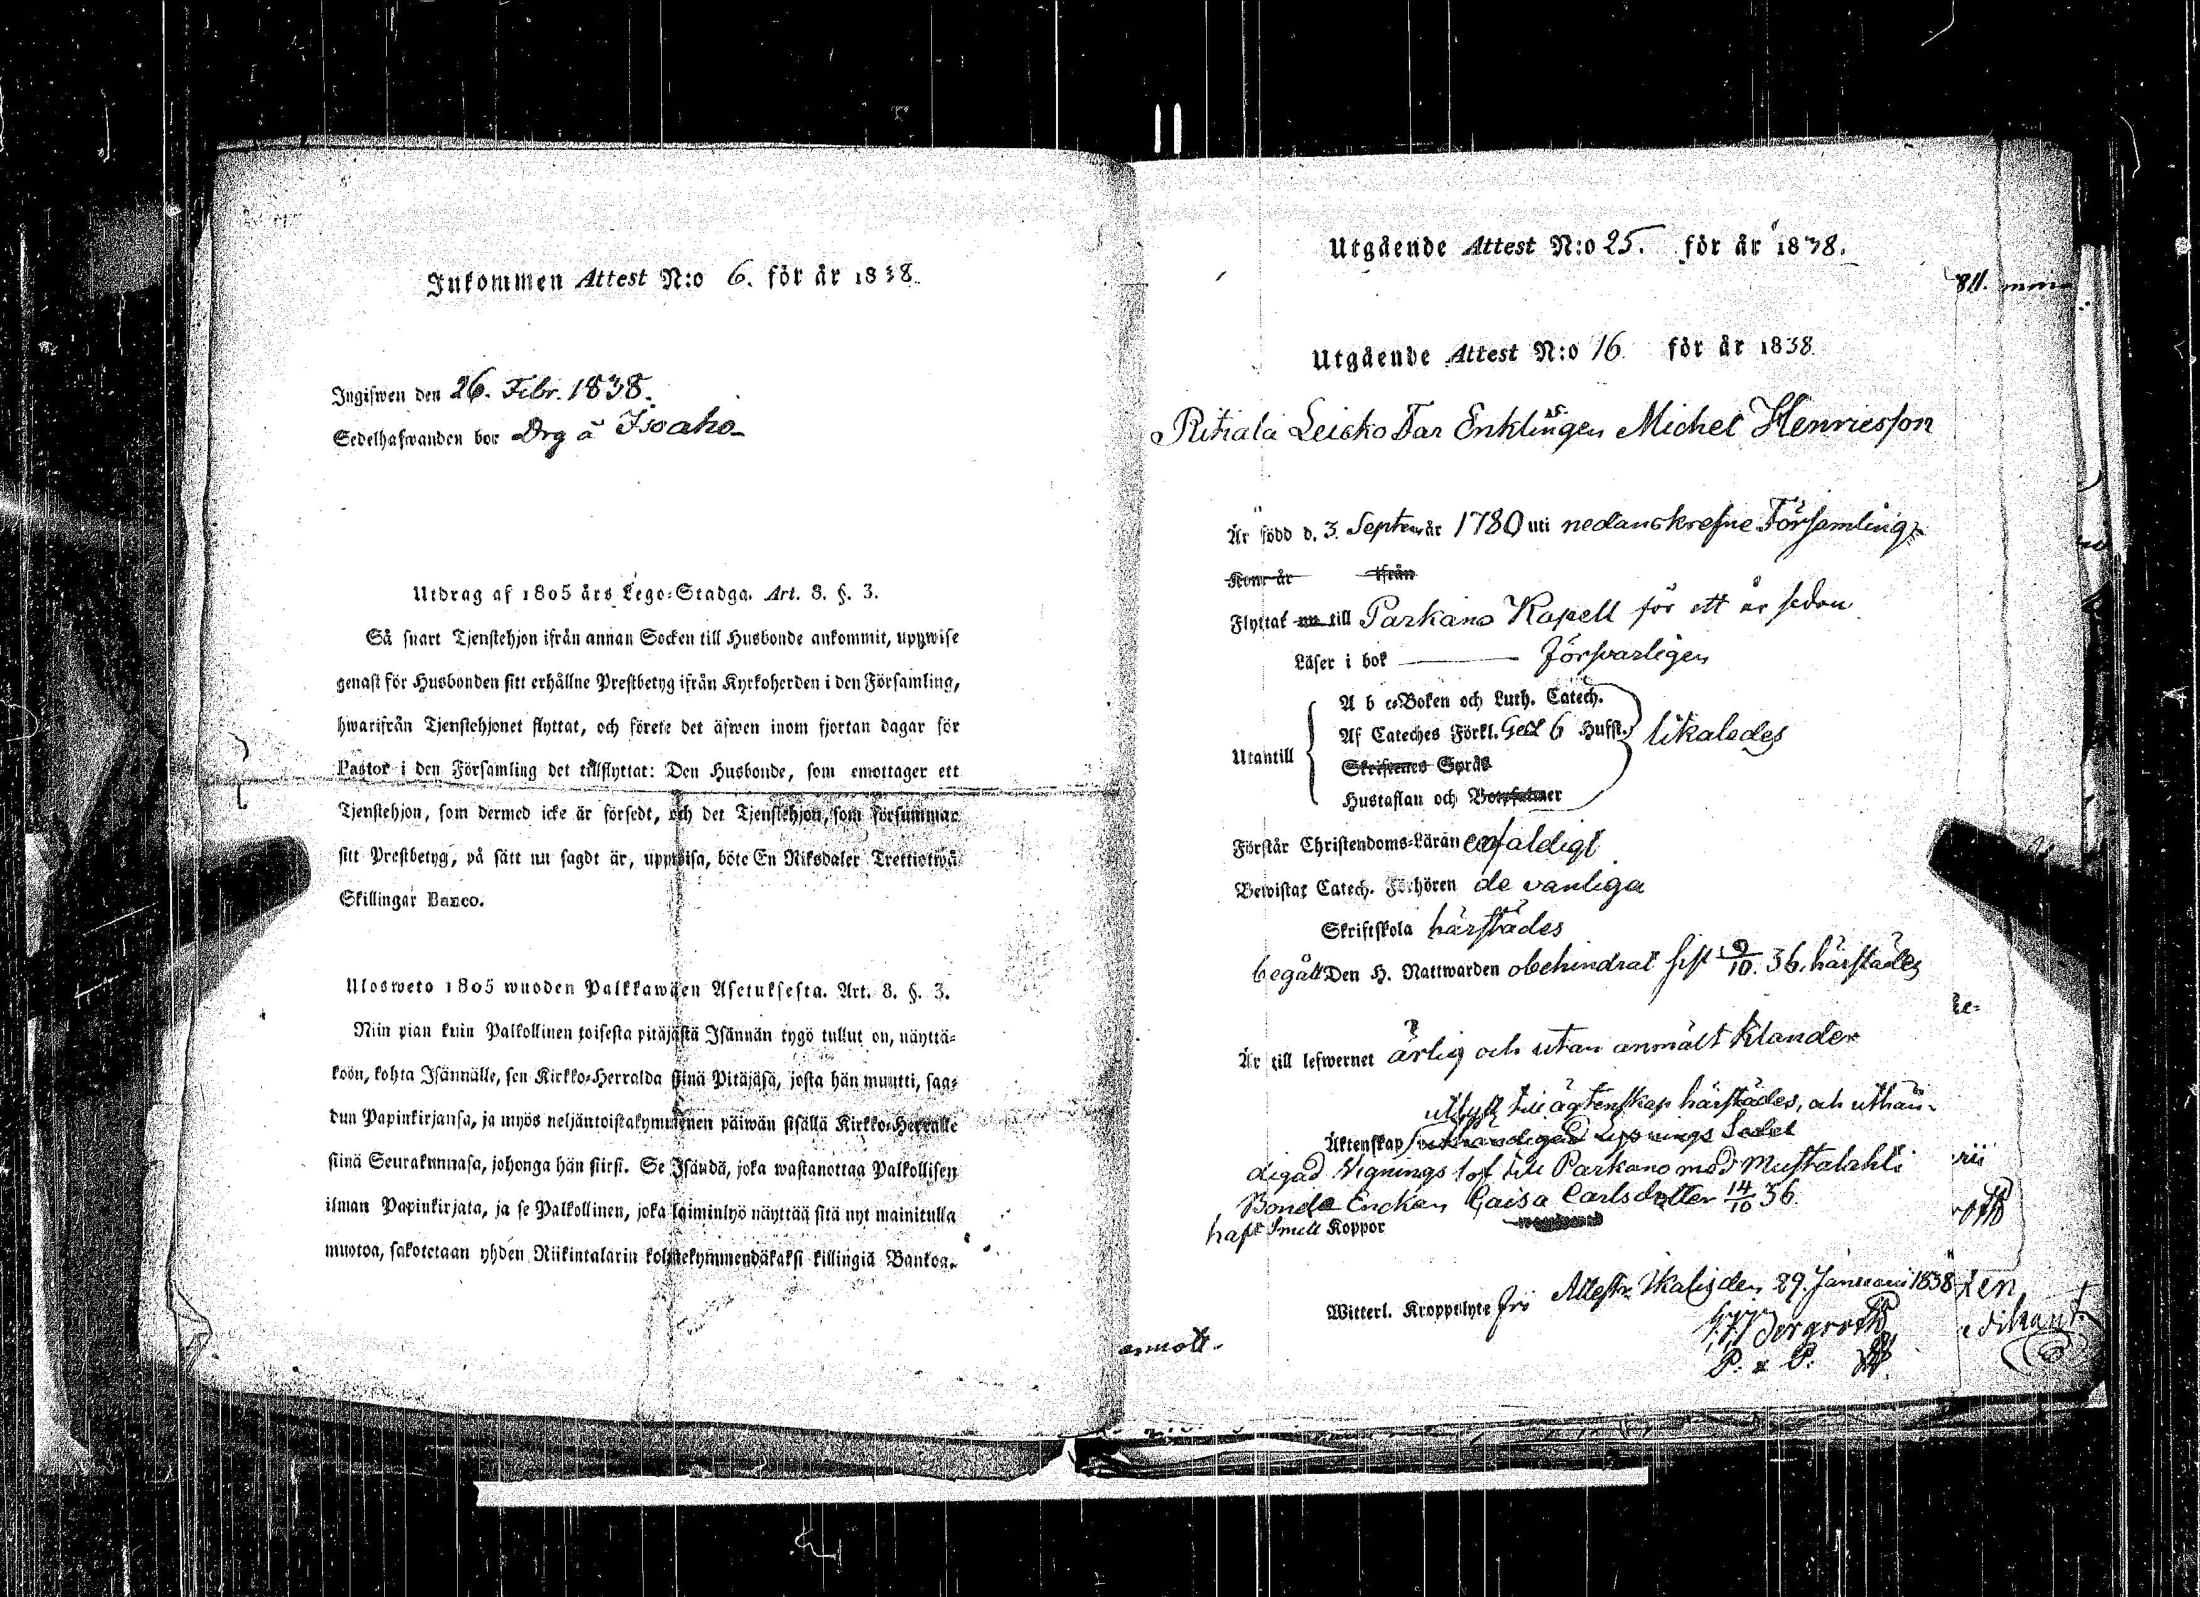 Inkommen Attest N:o 6. för år 1838.
Ingifwen den 26. Febr. 1838.
Sedelhafwanden bor Drg å Isoaho
Utdrag af 1805 års Lego-Stadga. Art. 8. §. 3.
Så snart Tjenstehjon ifrån annan Socken till Husbonde ankommit, uppwise
genast för Husbonden sitt erhållne Prestbetyg ifrån Kyrkoherden i den Församling,
hwarifrån Tjenstehjonet flyttat, och förete det äfwen inom fjortan dagar för
Pastor i den Församling det tillflyttat: Den Husbonde, som emottager ett
Tjenstehjon, som dermed icke är försedt, och det Tjenstehjon, som försummar
sitt Prestbetyg, på sätt nu sagdt är, uppwisa, böte En Riksdaler Trettiotwå
Skillingar Banco.
Ulosweto 1805 wuoden Palkkawäen Asetuksesta. Art. 8. §. 3.
Niin pian kuin Palkollinen toisesta pitäjästä Isännän tygö tullut on, näyttä-
köön, kohta Isännälle, sen Kirkko-Herralda siinä Pitäjäsä, josta hän muutti, saa-
dun Papinkirjansa, ja myös neljäntoistakymmenen päiwän sisällä Kirkko-Herralle
siinä Seurakunnasa, johonga hän siirsi. Se Isäudä, joka wastanottaa Palkollisen
ilman Papinkirjata, ja se Palkollinen, joka laiminlyö näyttää sitä nyt mainitulla
muotoa, sakotetaan yhden Riikintalarin kolmekymmendäkaksi killingiä Bankoa.
Utgående Attest N:o 25. för år 1838.
Utgående Attest N:o 16 för år 1838
Ritiala Leisko Far Enklingen Michel Henricsson
Är född d. 3. Septem år 1780 uti nedanskrefne Församling
Kom år ifrån
Flyttat nu till Parkano Kapell för ett år sedan
Läser i bok försvarligen
Utantill
A b c-Boken och Luth. Catech.
Af Cateches Förkl. 6 Hufst.
likaledes
Skriftenes Språk
Hustaflan och Botpsalmer
Förstår Christendoms-Läran enfaldigt
Bewistat Catech. Förhören de vanliga
Skriftskola härstädes
begått Den H. Nattwarden obehindrat sist 9/10. 36. härstädes
Är till lefwernet ärlig och utan anmält klander
utlyst till ägtenskap härstädes, och uthän-
Äktenskap Lysnings Sedel
digad Vignings lof till Parkano med Mustalahti
Bonde Enckan Caisa Carlsdotter 14/10 36.
haft Smitt Koppor
Witterl. Kropplyte fri Attestr. Ikalis den 29. Januarii 1838
Bergroth
P.
annott.